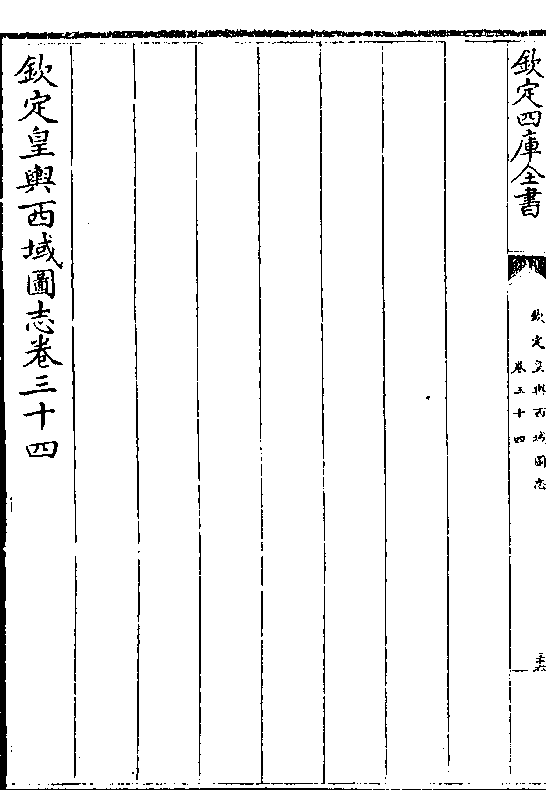 欽定四庫全書
欽定皇輿西域圖志
卷三十四
欽定皇輿西域圖志卷三十四